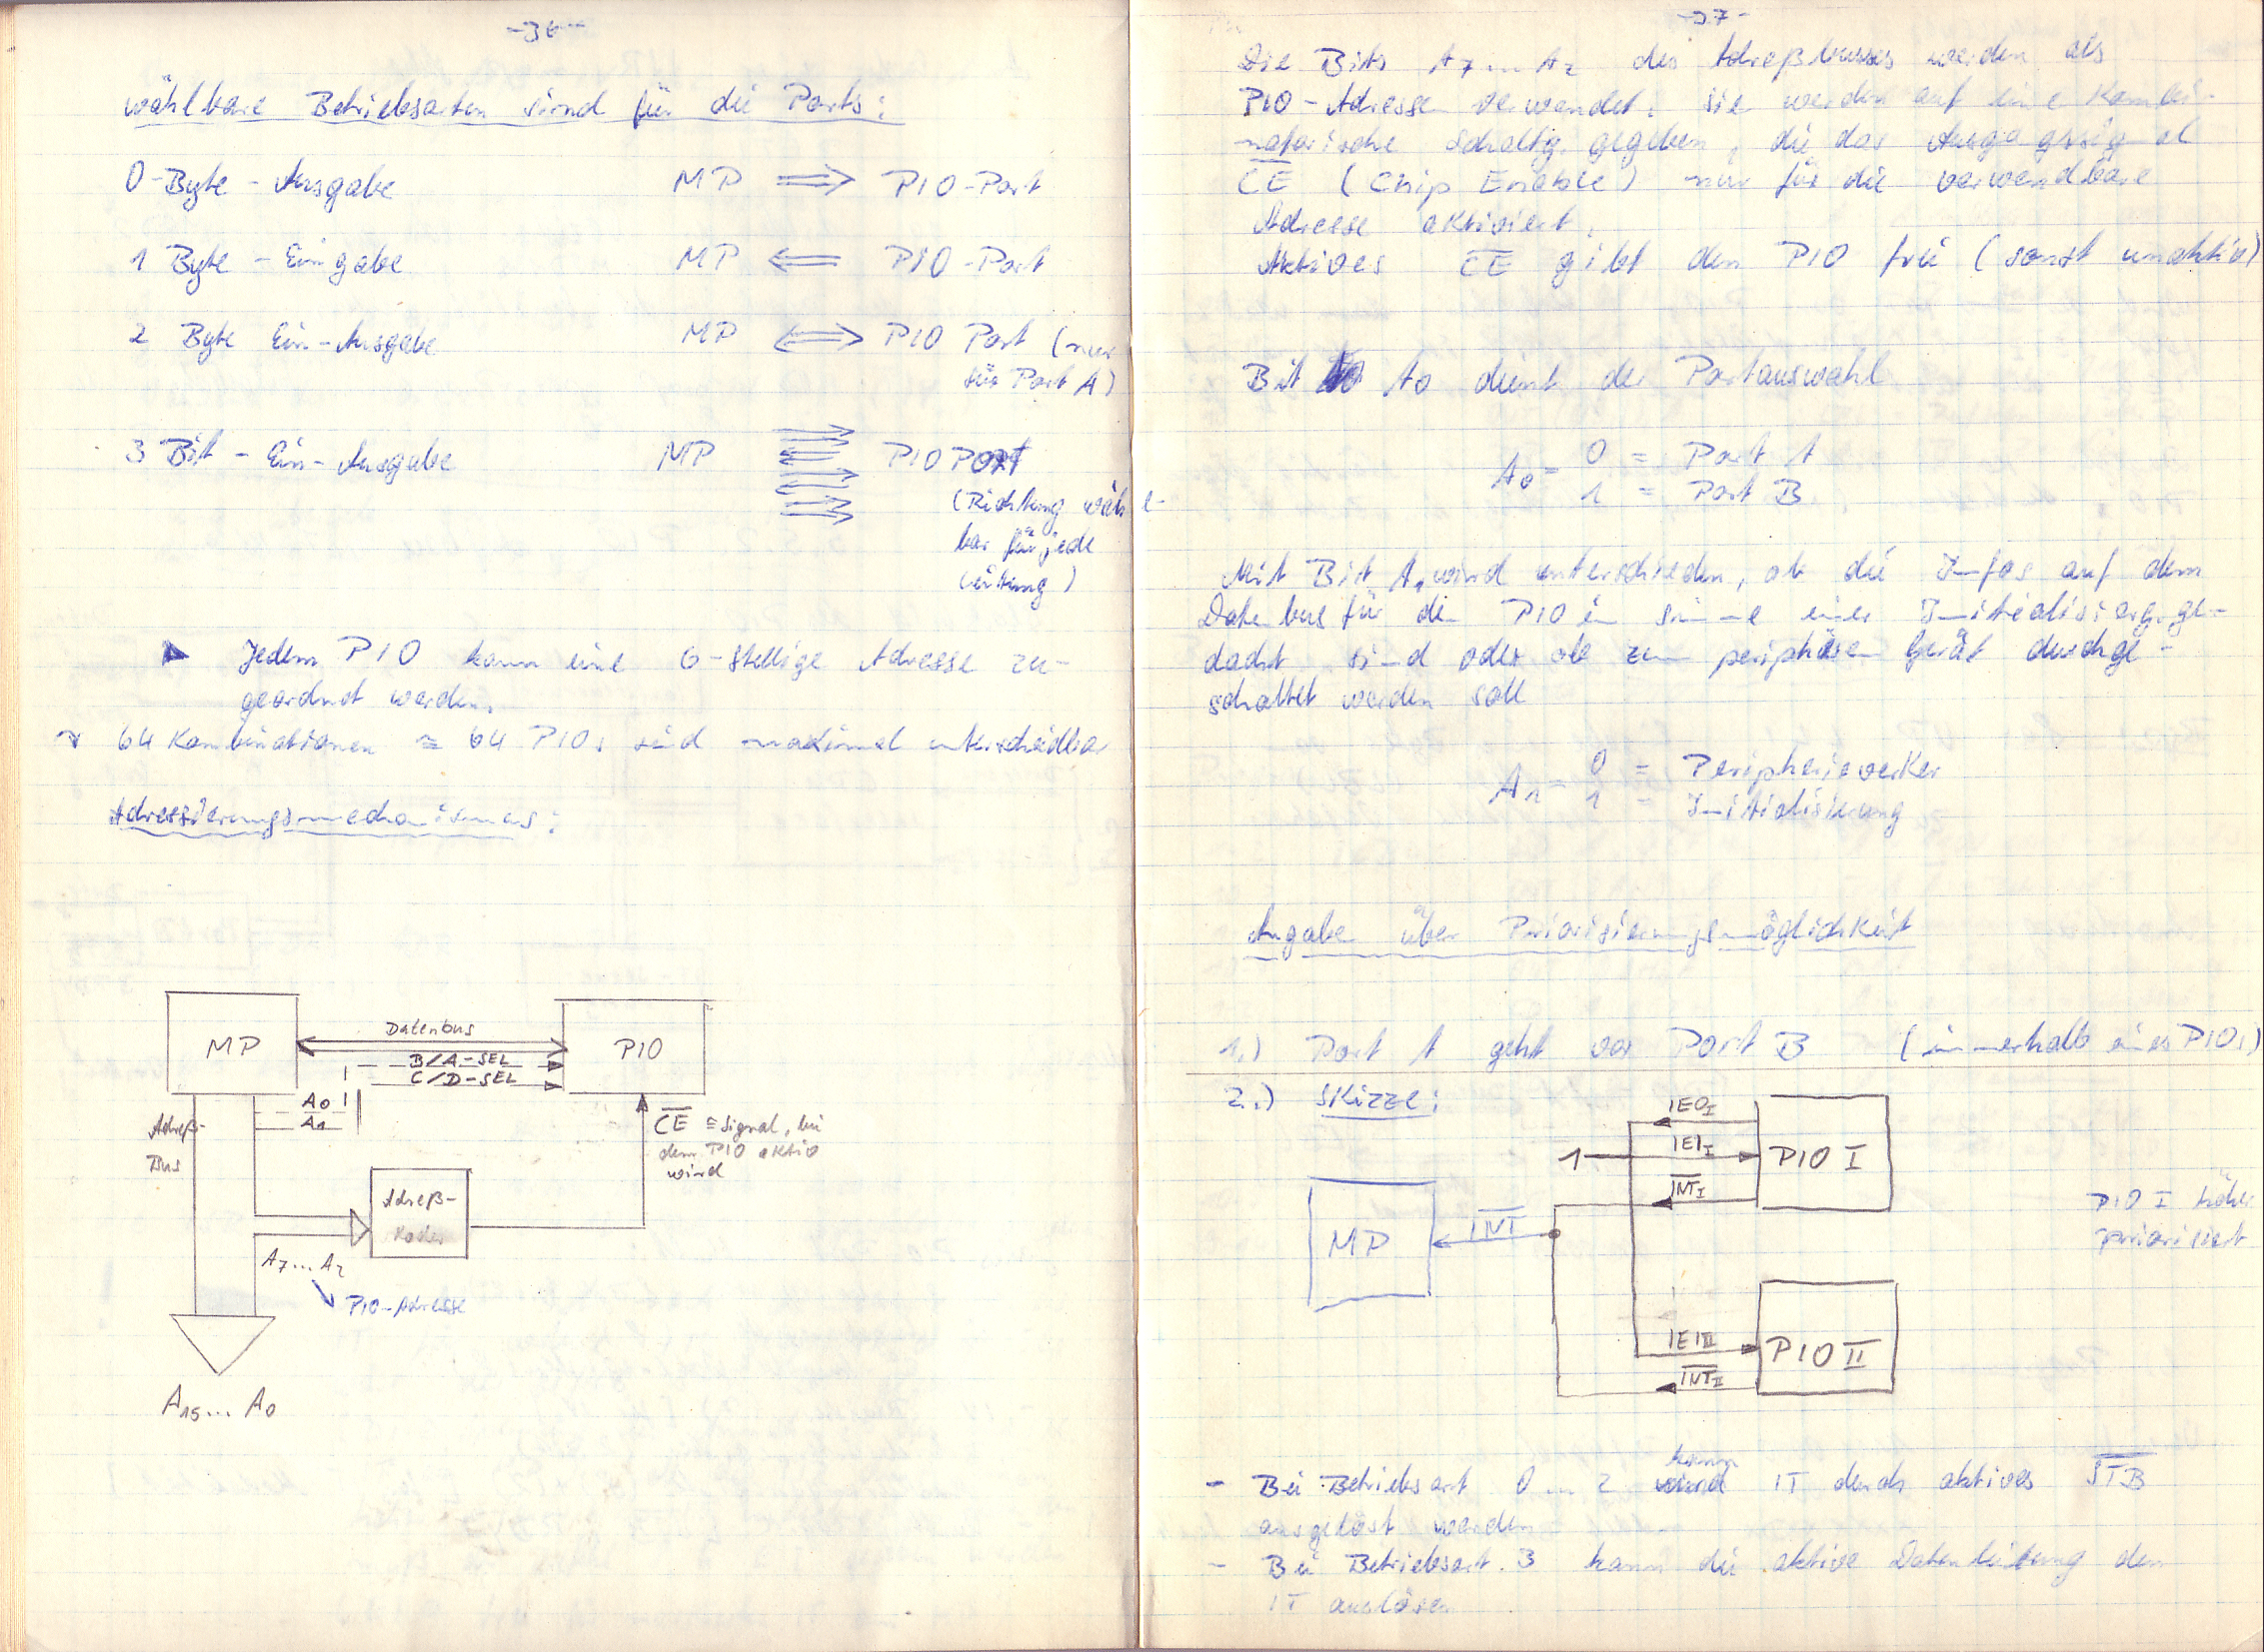 -36-
wählbare Betriebsarten sind für die Ports:
0-Byte-Ausgabe MP ⟹ PIO-Port
1 Byte-Eingabe MP ⟸ PIO-Port
2 Byte Ein-Ausgabe MP ⟺ PIO Port (nur
für Port A)
3 Bit-Ein-Ausgabe MP PIO PORT
(Richtung wähl-
bar für jede
Leitung)
Jedem PIO kann eine 6-stellige Adresse zu-
geordnet werden.
64 Kombinationen ≈ 64 PIOs sind maximal unterscheidbar
Adressierungsmechanismus:
MP
Datenbus
PIO
B/A-SEL
C/D-SEL
A0
A1
Adreß-
Bus
C̅E̅ ≡ Signal, bei
dem PIO aktiv
wird
Adreß-
Koder
A7...A2
PIO-Adresse
A15... A0
-37-
Die Bits A7...A2 des Adreßbusses werden als
PIO-Adresse verwendet. Sie werden auf eine kombi-
natorische Schaltg. gegeben, die das Ausgangssignal
C̅E̅ (Chip Enable) nur für die verwendbare
Adresse aktiviert.
Aktives C̅E̅ gibt den PIO frei (sonst unaktiv)
Bit A0 dient der Portauswahl
A0 = 0 = Port A
1 = Port B
Mit Bit A1 wird unterschieden, ob die Infos auf dem
Datenbus für den PIO im Sinne einer Initialisierg. ge-
dacht sind oder ob zum peripheren Gerät durchge-
schaltet werden soll
A1 = 0 = Peripherieverker
1 = Initialisierung
Angabe über Priorisierungsmöglichkeit
1.) Port A geht vor Port B (innerhalb eines PIOs)
2.) Skizze:
IEO_I
1
IEI_I
PIO I
I̅N̅T̅_I
MP
I̅N̅T̅
PIO I höher
priorisiert
IEI_II
PIO II
I̅N̅T̅_II
- Bei Betriebsart 0...2 kann IT durch aktives S̅T̅B̅
ausgelöst werden
- Bei Betriebsart 3 kann die aktive Datenleitung den
IT auslösen